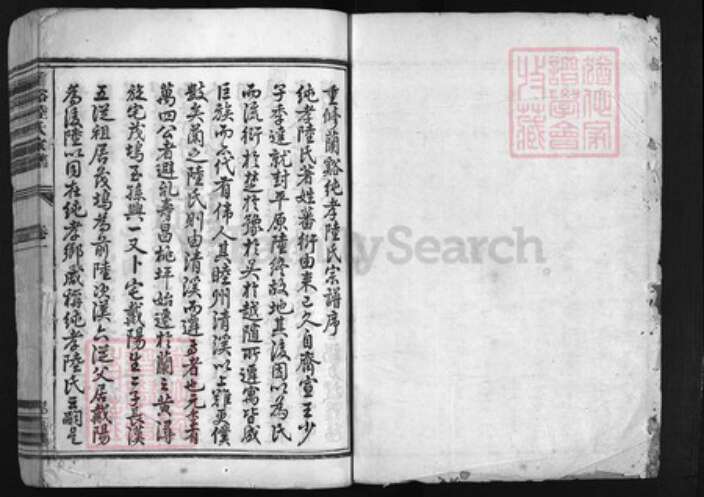 重修蘭谿純孝陸氏宗譜序
純孝陸氏著姓蕃衍由來已久自齊宣王少
子季逵就封平原陸終故地其後因以為氏
而流衍於楚於豫於吳於越隨所遷寓皆成
巨族而代有偉人其睦州清溪以上難更僕
數矣蘭之陸氏則由清溪而遷者也元季有
萬四公者避亂壽昌桃坪始遷於蘭之黃潯
旋宅茂塢玉孫興一又卜宅戴陽生二子長漢
五從祖居茂塢為前陸次漢六從父居戴陽
為後陸以同在純孝鄉咸稱純孝陸氏云嗣是
陸氏宗譜
卷一
FamilySearch